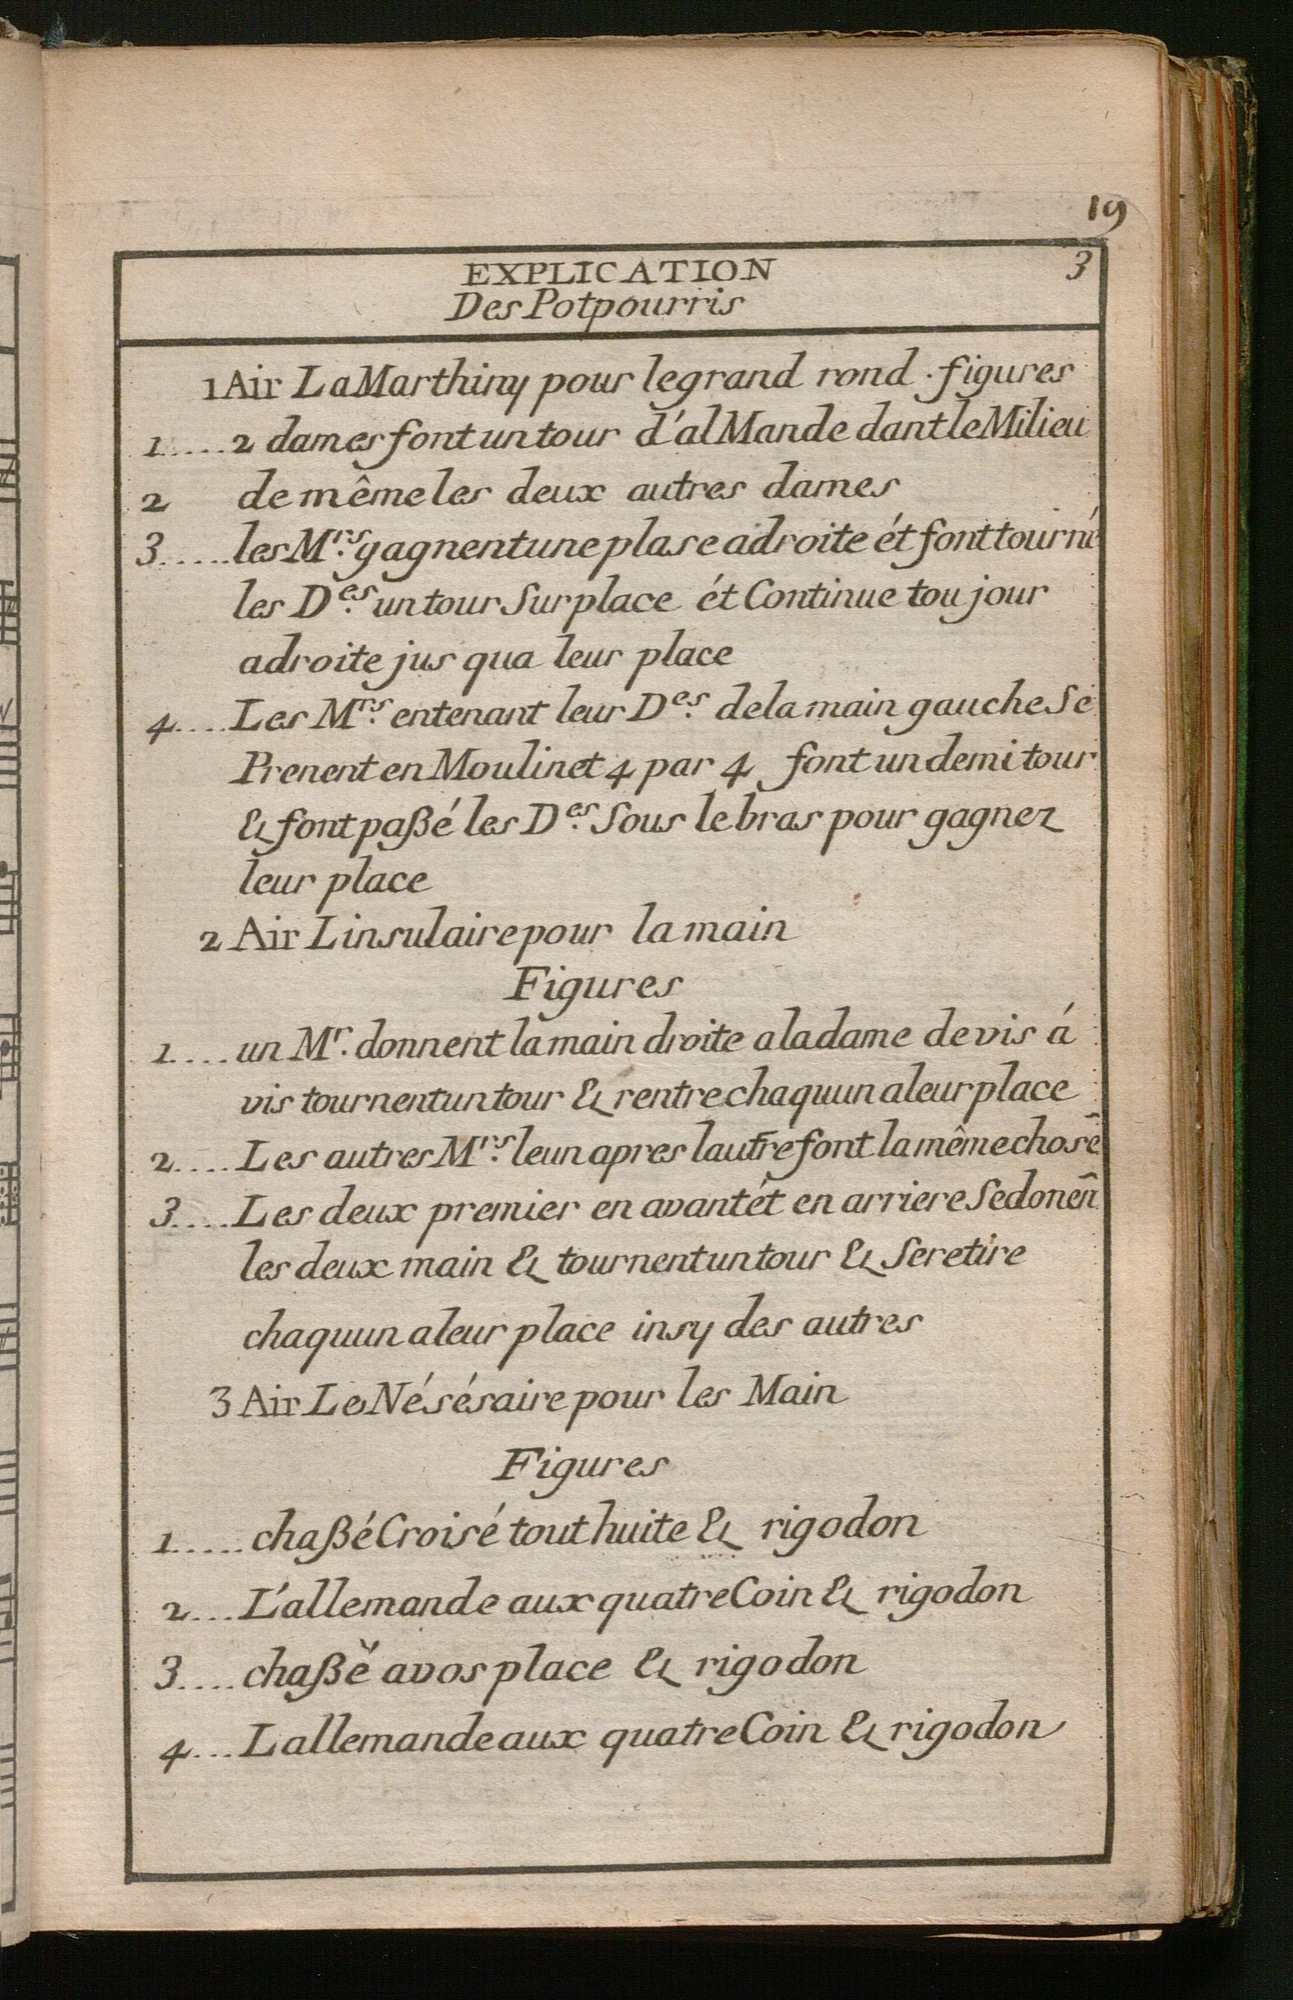 19
EXPLICATION 3
Des Potpourris
1 Air La Marthiny pour le grand rond . figures
1.....2 dames font un tour d'alMande dant le Milieu
2 de même les deux autres dames
3.....les M.rs gagnent une plase a droite ét font tourné
les D.es un tour Sur place ét Continue tou jour
a droite jus qua leur place
4....Les M.rs en tenant leur D.es de la main gauche Se
Prenent en Moulinet 4 par 4 font un demi tour
& font paßé les D.es Sous le bras pour gagnez
leur place
2 Air Linsulaire pour la main
Figures
1....un M.r donnent la main droite a la dame de vis á
vis tournent un tour & rentre chaquun a leur place
2....Les autres M.rs leun apres lautre font la même chose
3....Les deux premier en avant ét en arriere Se donen̄
les deux main & tournent un tour & Se retire
chaquun a leur place insy des autres
3 Air Le Nésésaire pour les Main
Figures
1.....chaßé Croisé tout huite & rigodon
2...L'allemande aux quatre Coin & rigodon
3....chaßé a vos place & rigodon
4...Lallemande aux quatre Coin & rigodon